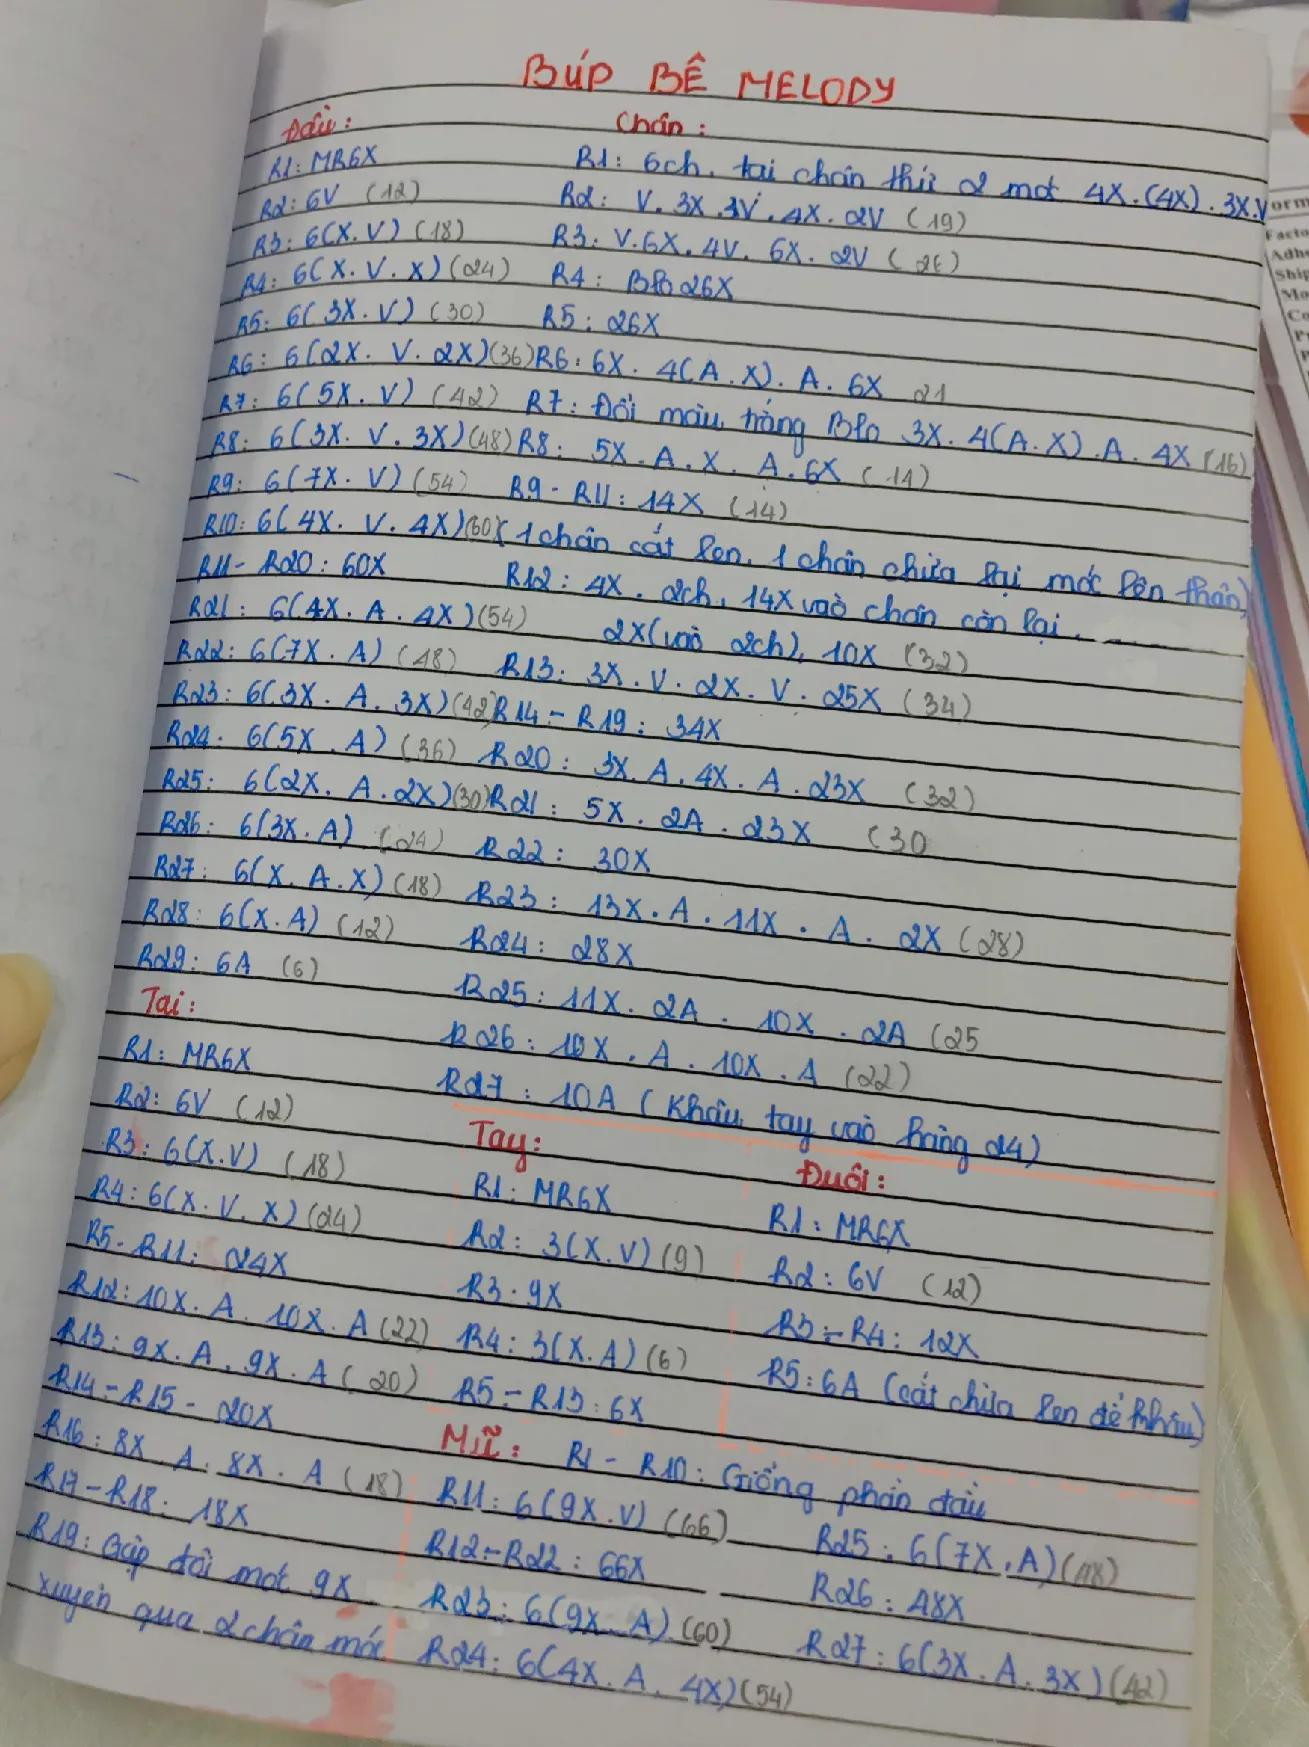 BÚP BÊ MELODY
Đầu:
R1: MR6X
R2: 6V (12)
R3: 6(X.V) (18)
R4: 6(X.V.X) (24)
R5: 6(3X.V) (30)
R6: 6(2X.V.2X) (36)
R7: 6(5X.V) (42)
R8: 6(3X.V.3X) (48)
R9: 6(7X.V) (54)
R10: 6(4X.V.4X) (60)
R11 - R20: 60X
R21: 6(4X.A.4X) (54)
R22: 6(7X.A) (48)
R23: 6(3X.A.3X) (42)
R24: 6(5X.A) (36)
R25: 6(2X.A.2X) (30)
R26: 6(3X.A) (24)
R27: 6(X.A.X) (18)
R28: 6(X.A) (12)
R29: 6A (6)
Tai:
R1: MR6X
R2: 6V (12)
R3: 6(X.V) (18)
R4: 6(X.V.X) (24)
R5 - R11: 24X
R12: 10X.A.10X.A (22)
R13: 9X.A.9X.A (20)
R14 - R15 - 20X
R16: 8X.A.8X.A (18)
R17 - R18: 18X
R19: Gập đôi móc 9X
xuyên qua 2 chân móc
Chân:
R1: 6ch, tại chân thứ 2 móc 4X.(4X).3X.V
R2: V.3X.3V.4X.2V (19)
R3: V.6X.4V.6X.2V (26)
R4: Blo 26X
R5: 26X
R6: 6X.4(A.X).A.6X 21
R7: Đổi màu trắng Blo 3X.4(A.X).A.4X (16)
R8: 5X.A.X.A.6X (14)
R9 - R11: 14X (14)
(1 chân cắt len, 1 chân chừa lại móc lên thân)
R12: 4X.2ch, 14X vào chân còn lại,
2X(vào 2ch), 10X (32)
R13: 3X.V.2X.V.25X (34)
R14 - R19: 34X
R20: 3X.A.4X.A.23X (32)
R21: 5X.2A.23X (30
R22: 30X
R23: 13X.A.11X.A.2X (28)
R24: 28X
R25: 11X.2A.10X.2A (25
R26: 10X.A.10X.A (22)
R27: 10A (Khâu tay vào hàng 24)
Tay:
R1: MR6X
R2: 3(X.V) (9)
R3: 9X
R4: 3(X.A) (6)
R5 - R13: 6X
Đuôi:
R1: MR6X
R2: 6V (12)
R3 - R4: 12X
R5: 6A (cắt chừa len để khâu)
Mũ: R1 - R10: Giống phần đầu
R11: 6(9X.V) (66)
R12 - R22: 66X
R23: 6(9X.A) (60)
R24: 6(4X.A.4X) (54)
R25: 6(7X.A) (48)
R26: 48X
R27: 6(3X.A.3X) (42)